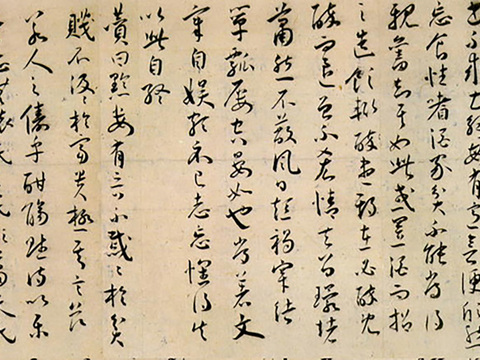 書不求甚解每有會意便欣然
忘食性嗜酒家貧不能常得
親舊知其如此或置酒而招
之造飲輒盡期在必醉既
醉而退曾不吝情去留環堵
蕭然不蔽風日短褐穿結
簞瓢屢空晏如也常著文
章自娛頗示己志忘懷得失
以此自終
贊曰黔婁有言不戚戚於貧
賤不汲汲於富貴極其言茲
若人之儔乎酣觴賦詩以樂
志無懷氏之民歟葛天氏